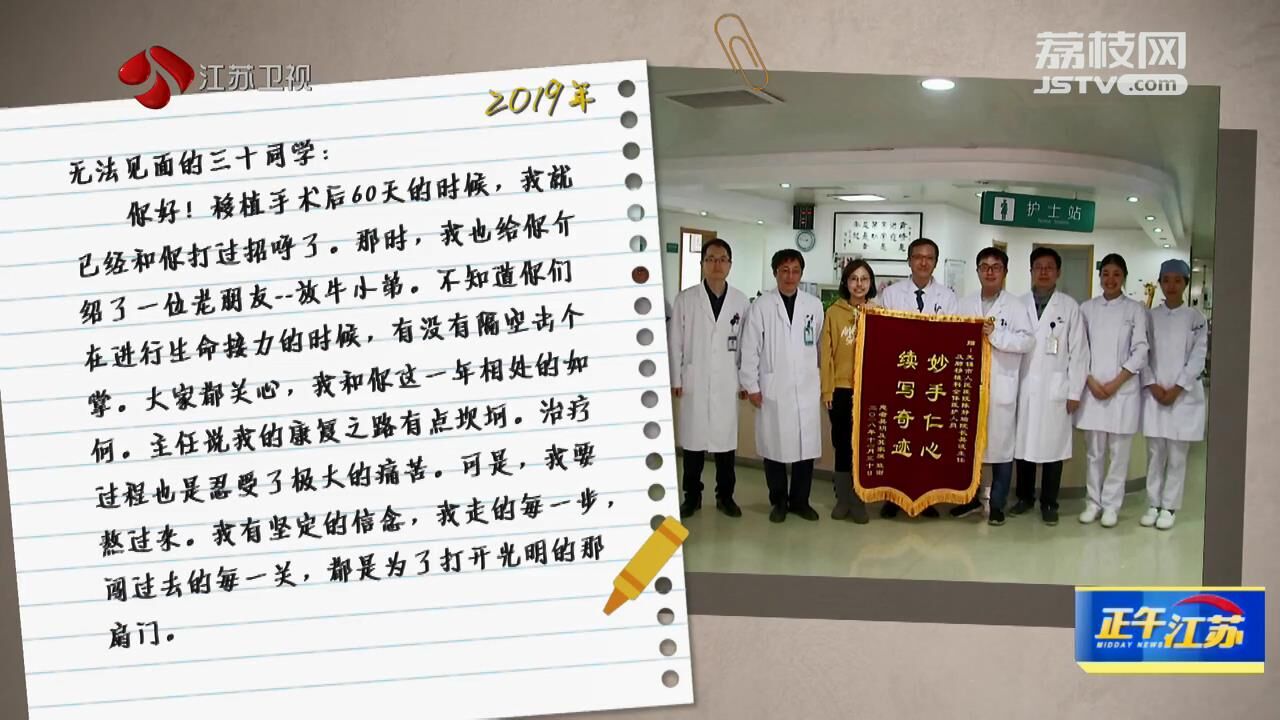 江苏卫视
荔枝网
JSTV.com
2019年
无法见面的三十同学：
你好！移植手术后60天的时候，我就
已经和你打过招呼了。那时，我也给你介
绍了一位老朋友--放牛小弟。不知道你们
在进行生命接力的时候，有没有隔空击个
掌。大家都关心，我和你这一年相处的如
何。主任说我的康复之路有点坎坷。治疗
过程也是忍受了极大的痛苦。可是，我要
熬过来。我有坚定的信念，我走的每一步，
闯过去的每一关，都是为了打开光明的那
扇门。
护士站
无锡市人民医院陈静瑜院长吴波主任
及肺移植科全体医护人员
妙手仁心
续写奇迹
正午江苏
MIDDAY NEWS